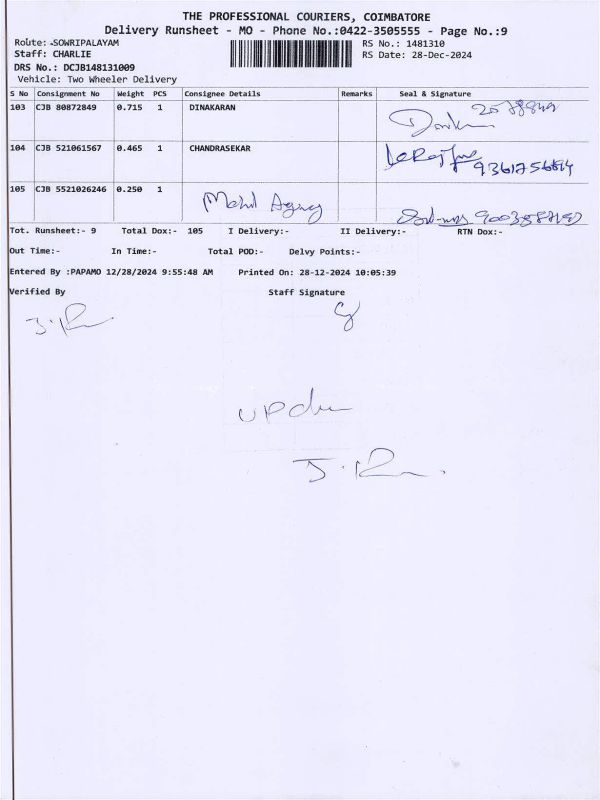 THE PROFESSIONAL COURIERS, COIMBATORE
Delivery Runsheet - MO - Phone No.:0422-3505555 - Page No.:9
Route: SOWRIPALAYAM RS No.: 1481310
Staff: CHARLIE RS Date: 28-Dec-2024
DRS No.: DCJB148131009
Vehicle: Two Wheeler Delivery
S No Consignment No Weight PCS Consignee Details Remarks Seal & Signature
103 CJB 80872849 0.715 1 DINAKARAN
104 CJB 521061567 0.465 1 CHANDRASEKAR
105 CJB 5521026246 0.250 1
Tot. Runsheet:- 9 Total Dox:- 105 I Delivery:- II Delivery:- RTN Dox:-
Out Time:- In Time:- Total POD:- Delvy Points:-
Entered By :PAPAMO 12/28/2024 9:55:48 AM Printed On: 28-12-2024 10:05:39
Verified By Staff Signature